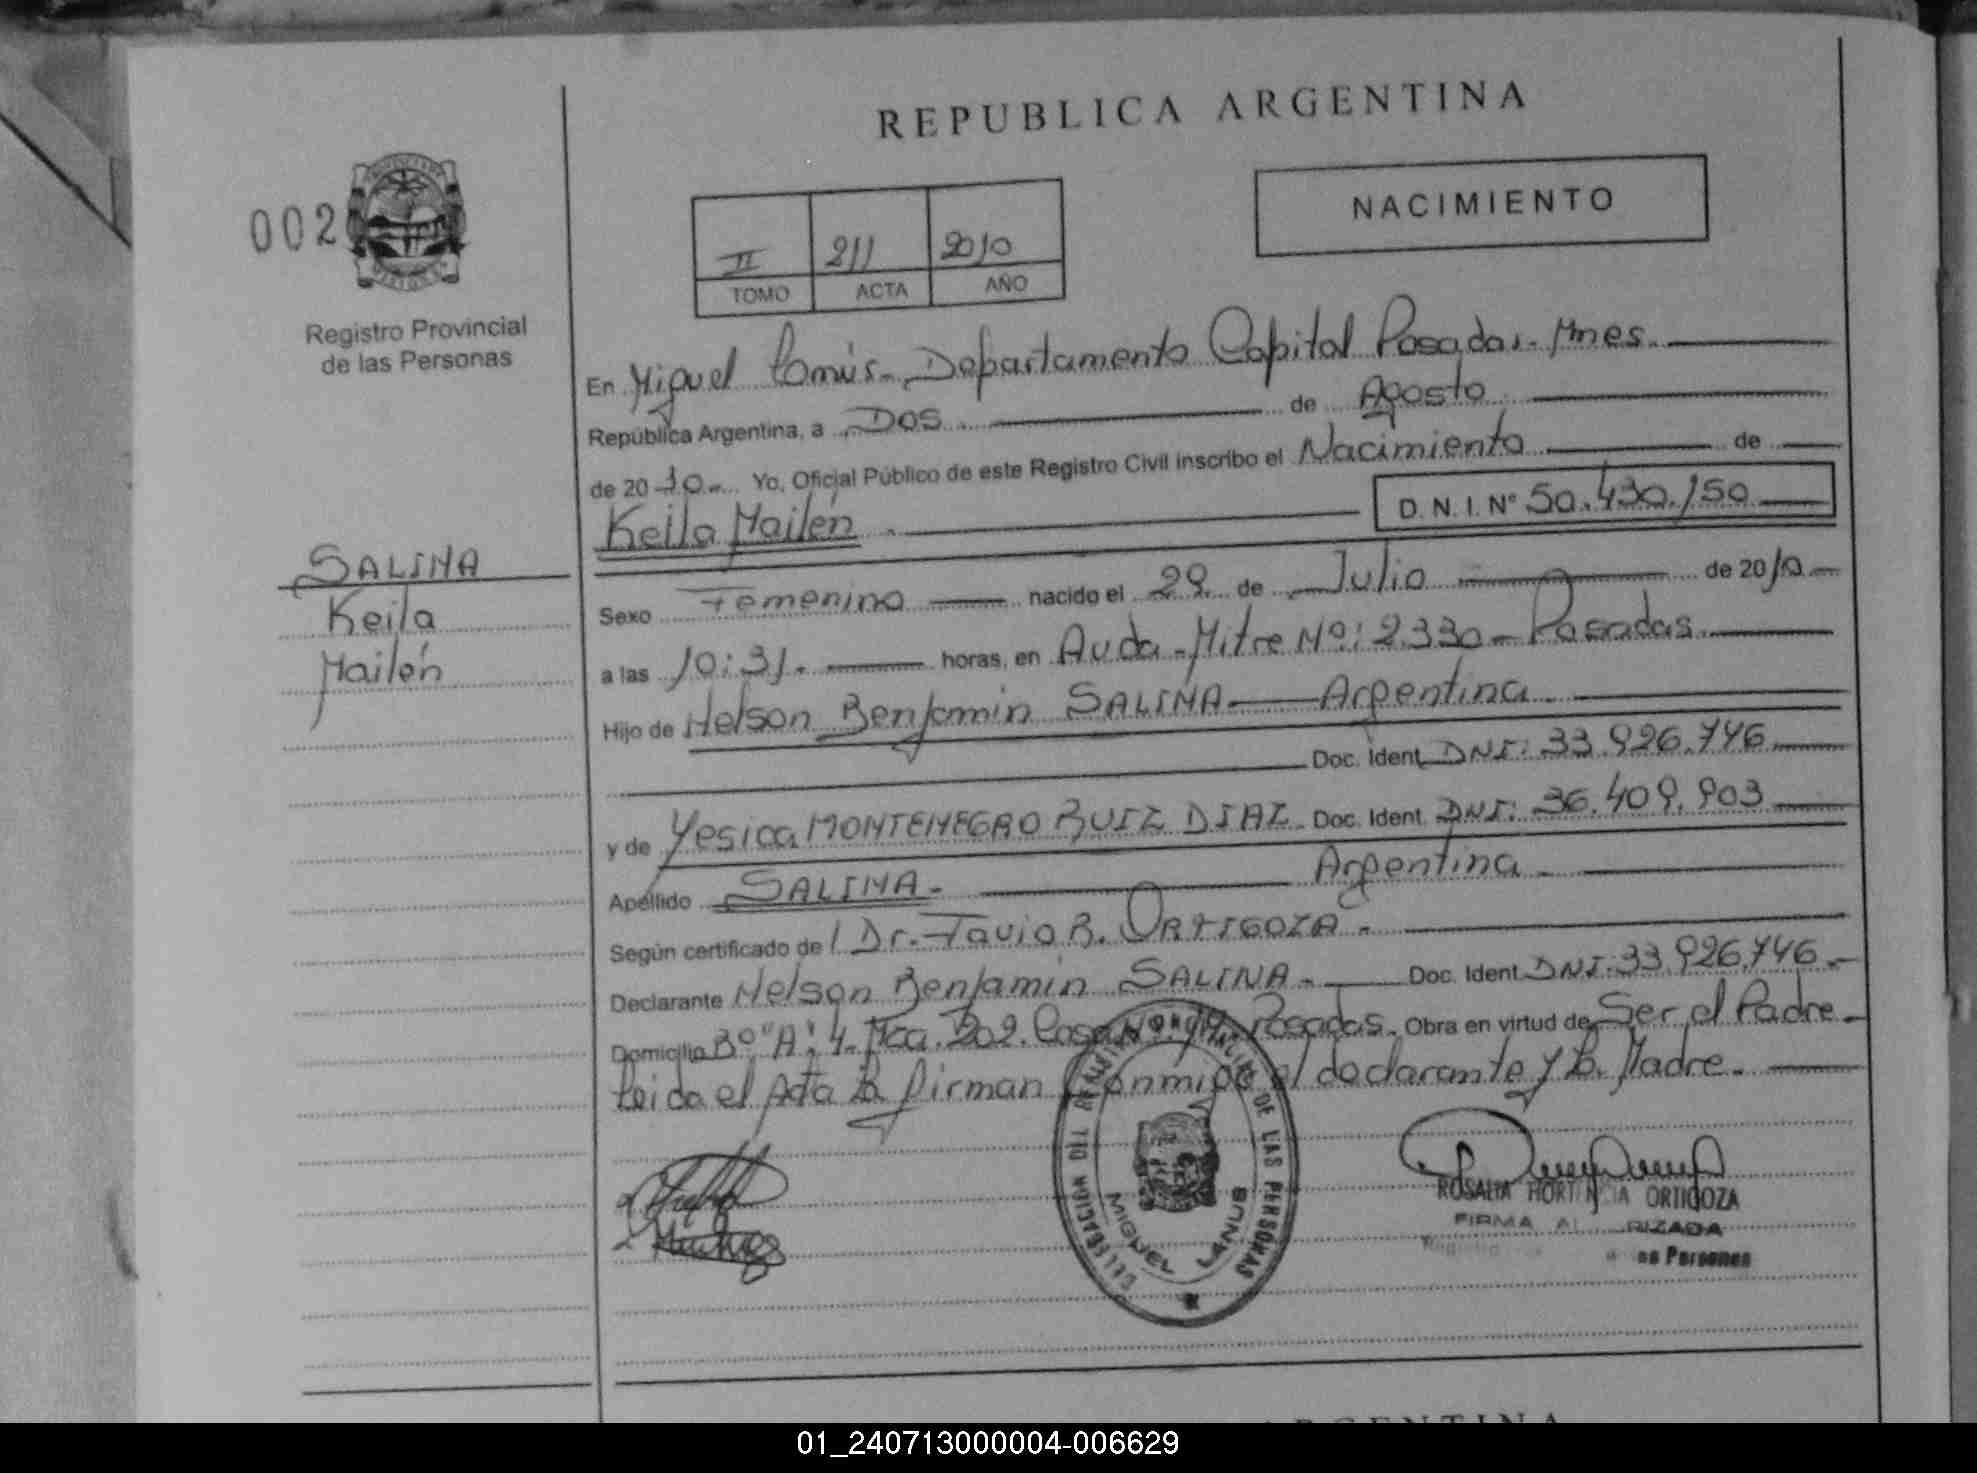 REPUBLICA ARGENTINA
NACIMIENTO
002
II 211 2010
TOMO ACTA AÑO
Registro Provincial
de las Personas
En Miguel Lanús - Departamento Capital Posadas - Mnes.
República Argentina, a DOS de Agosto
de 2010 - Yo, Oficial Público de este Registro Civil inscribo el Nacimiento de
Keila Mailén D. N. I. Nº 50.430.150
SALINA
Keila
Mailén
Sexo Femenino nacido el 29 de Julio de 2010
a las 10:31. horas, en Avda - Mitre Nº: 2330 - Posadas
Hijo de Nelson Benjamin SALINA Argentina
Doc. Ident. DNI: 33.926.746
y de Yesica MONTENEGRO RUIZ DIAZ Doc. Ident. DNI: 36.409.903
Apellido SALINA - Argentina
Según certificado de Dr. Favio R. ORTIGOZA -
Declarante Nelson Benjamin SALINA - Doc. Ident. DNI: 33.926.746 -
Domicilio Bº "A" 4 - Mza. 202. Casa Posadas. Obra en virtud de Ser el Padre
Leida el Acta La firman Conmigo el declarante y La Madre.
DELEGACION DEL DE LAS PERSONAS
MIGUEL LANUS
ROSALIA HORTENCIA ORTIGOZA
FIRMA AUTORIZADA
Personas
ARGENTINA
01_240713000004-006629